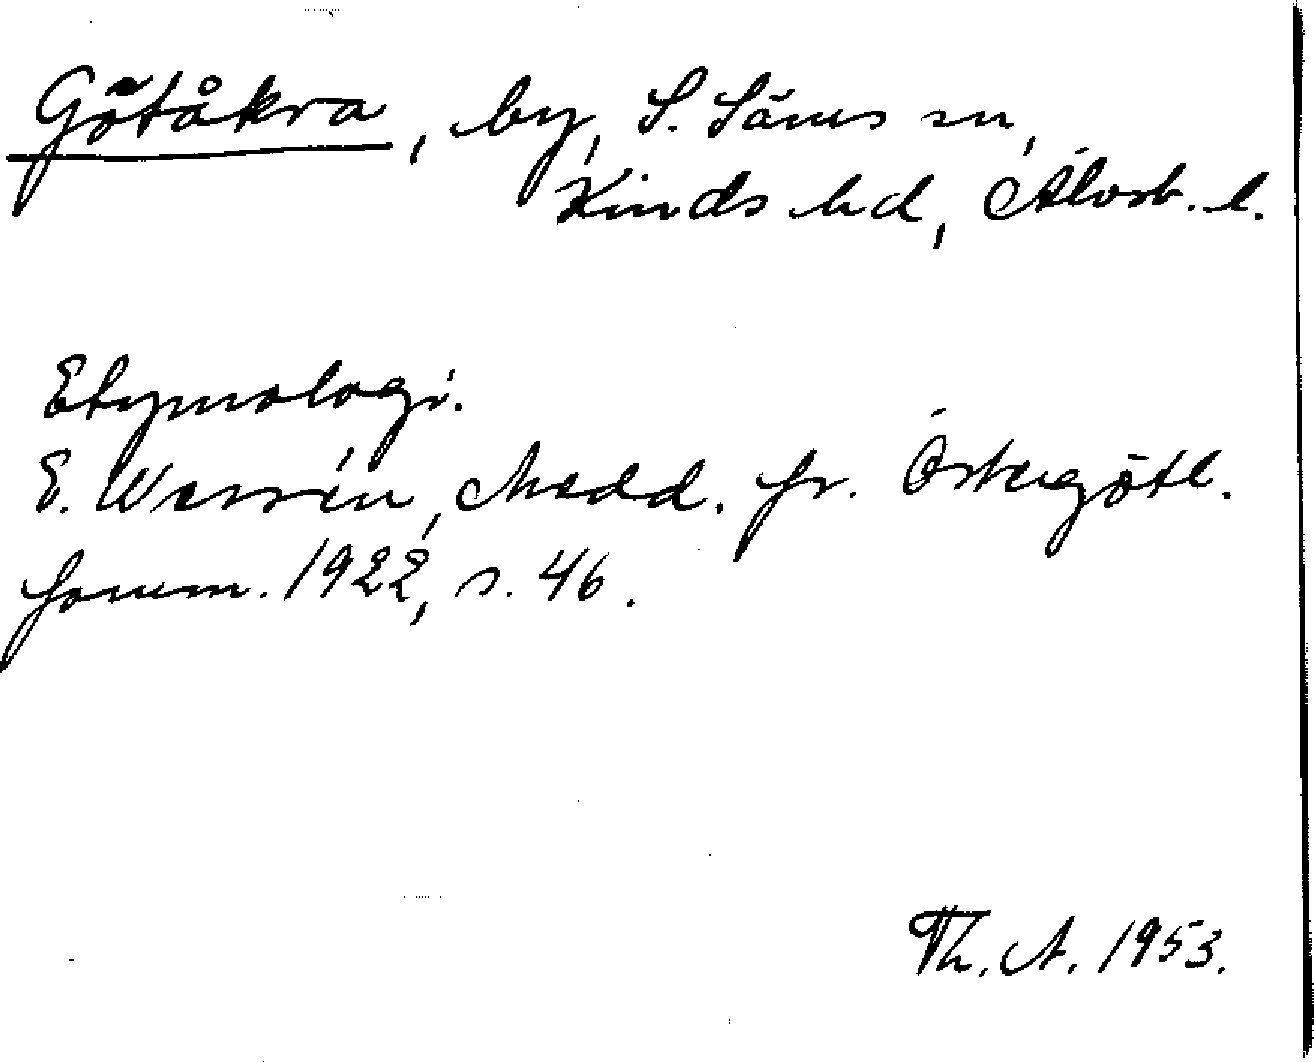 Götåkra, by, S. Säms sn,
Kinds hd, Älvsb. l.
Etymologi.
E. Wessén, Medd. fr. Östergötl.
fornm. 1922, s. 46.
Th. A. 1953.